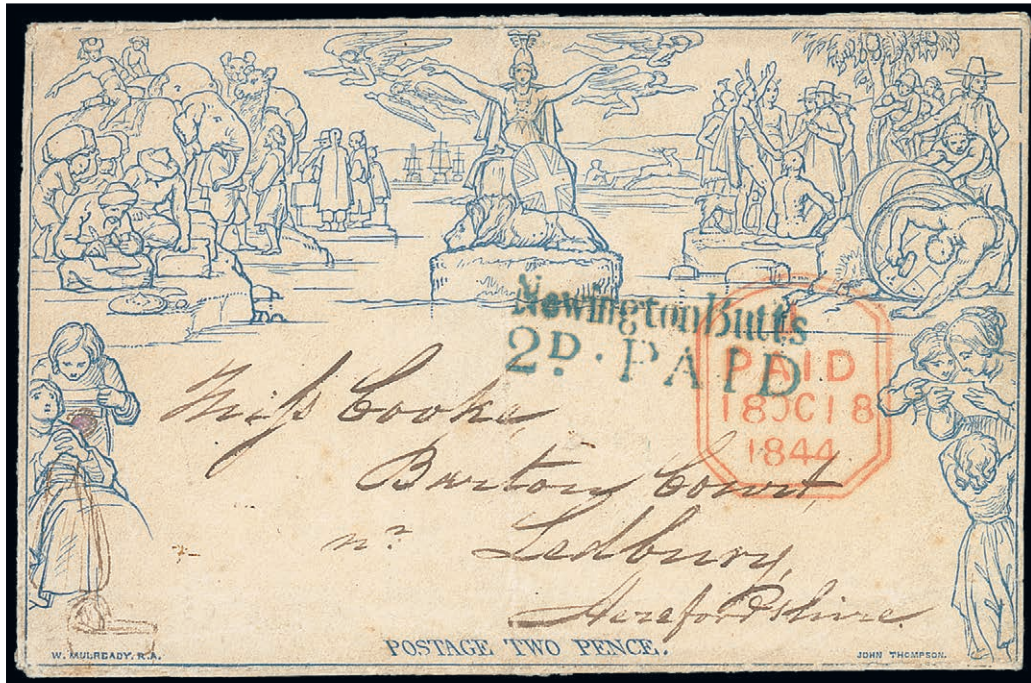 Newington Butts
2D. PAID
PAID
18 OC 18
1844
Miss Cooke,
Barton Court,
nr Ledbury,
Herefordshire.
POSTAGE TWO PENCE.
W. MULREADY. R.A.
JOHN THOMPSON.